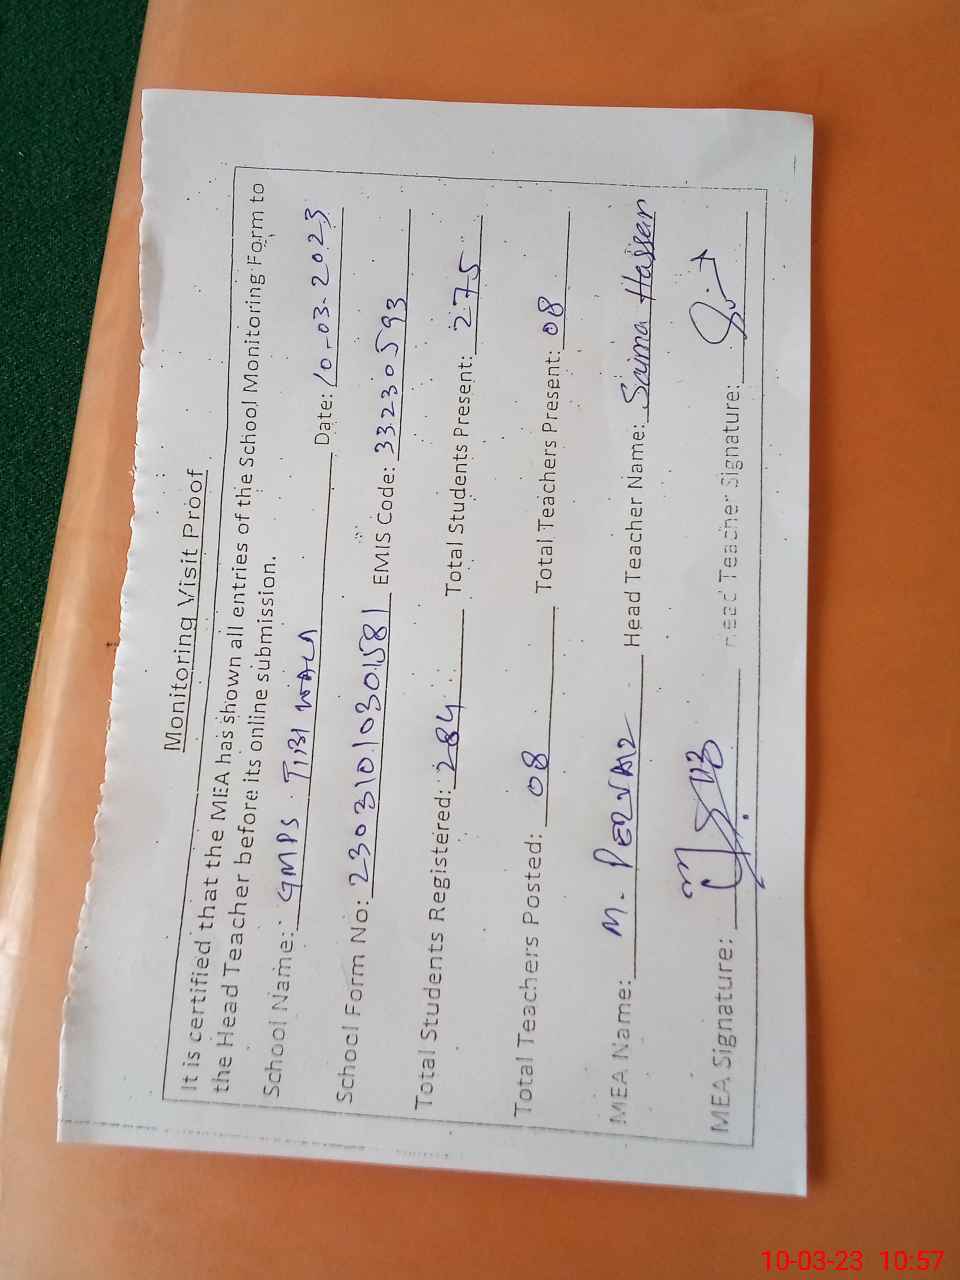 Monitoring Visit Proof
It is certified that the MEA has shown all entries of the School Monitoring Form to
the Head Teacher before its online submission.
School Name: GMPS Tibi WALA Date: 10-03-2023
School Form No: 23031010301581 EMIS Code: 33230593
Total Students Registered: 284 Total Students Present: 275
Total Teachers Posted: 08 Total Teachers Present: 08
MEA Name: M. PERVAIZ Head Teacher Name: Saima Hassan
MEA Signature: Head Teacher Signature:
10-03-23 10:57